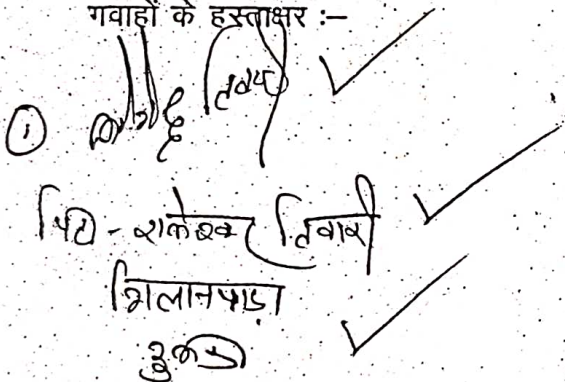 गवाहों के हस्ताक्षर :–
①
पिता - रामेश्वर तिवारी
गिलानपाड़ा
दुमका